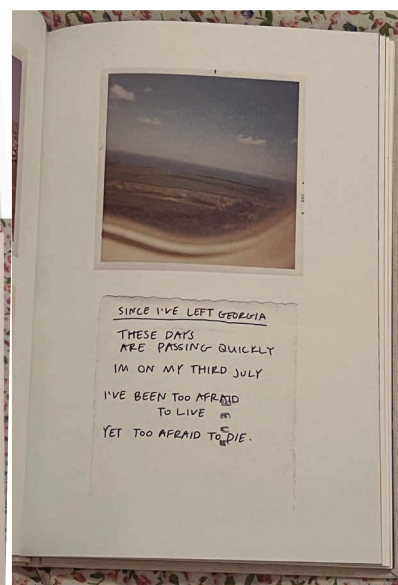 SINCE I'VE LEFT GEORGIA
THESE DAYS
ARE PASSING QUICKLY
IM ON MY THIRD JULY
I'VE BEEN TOO AFRAID
TO LIVE
YET TOO AFRAID TO DIE.